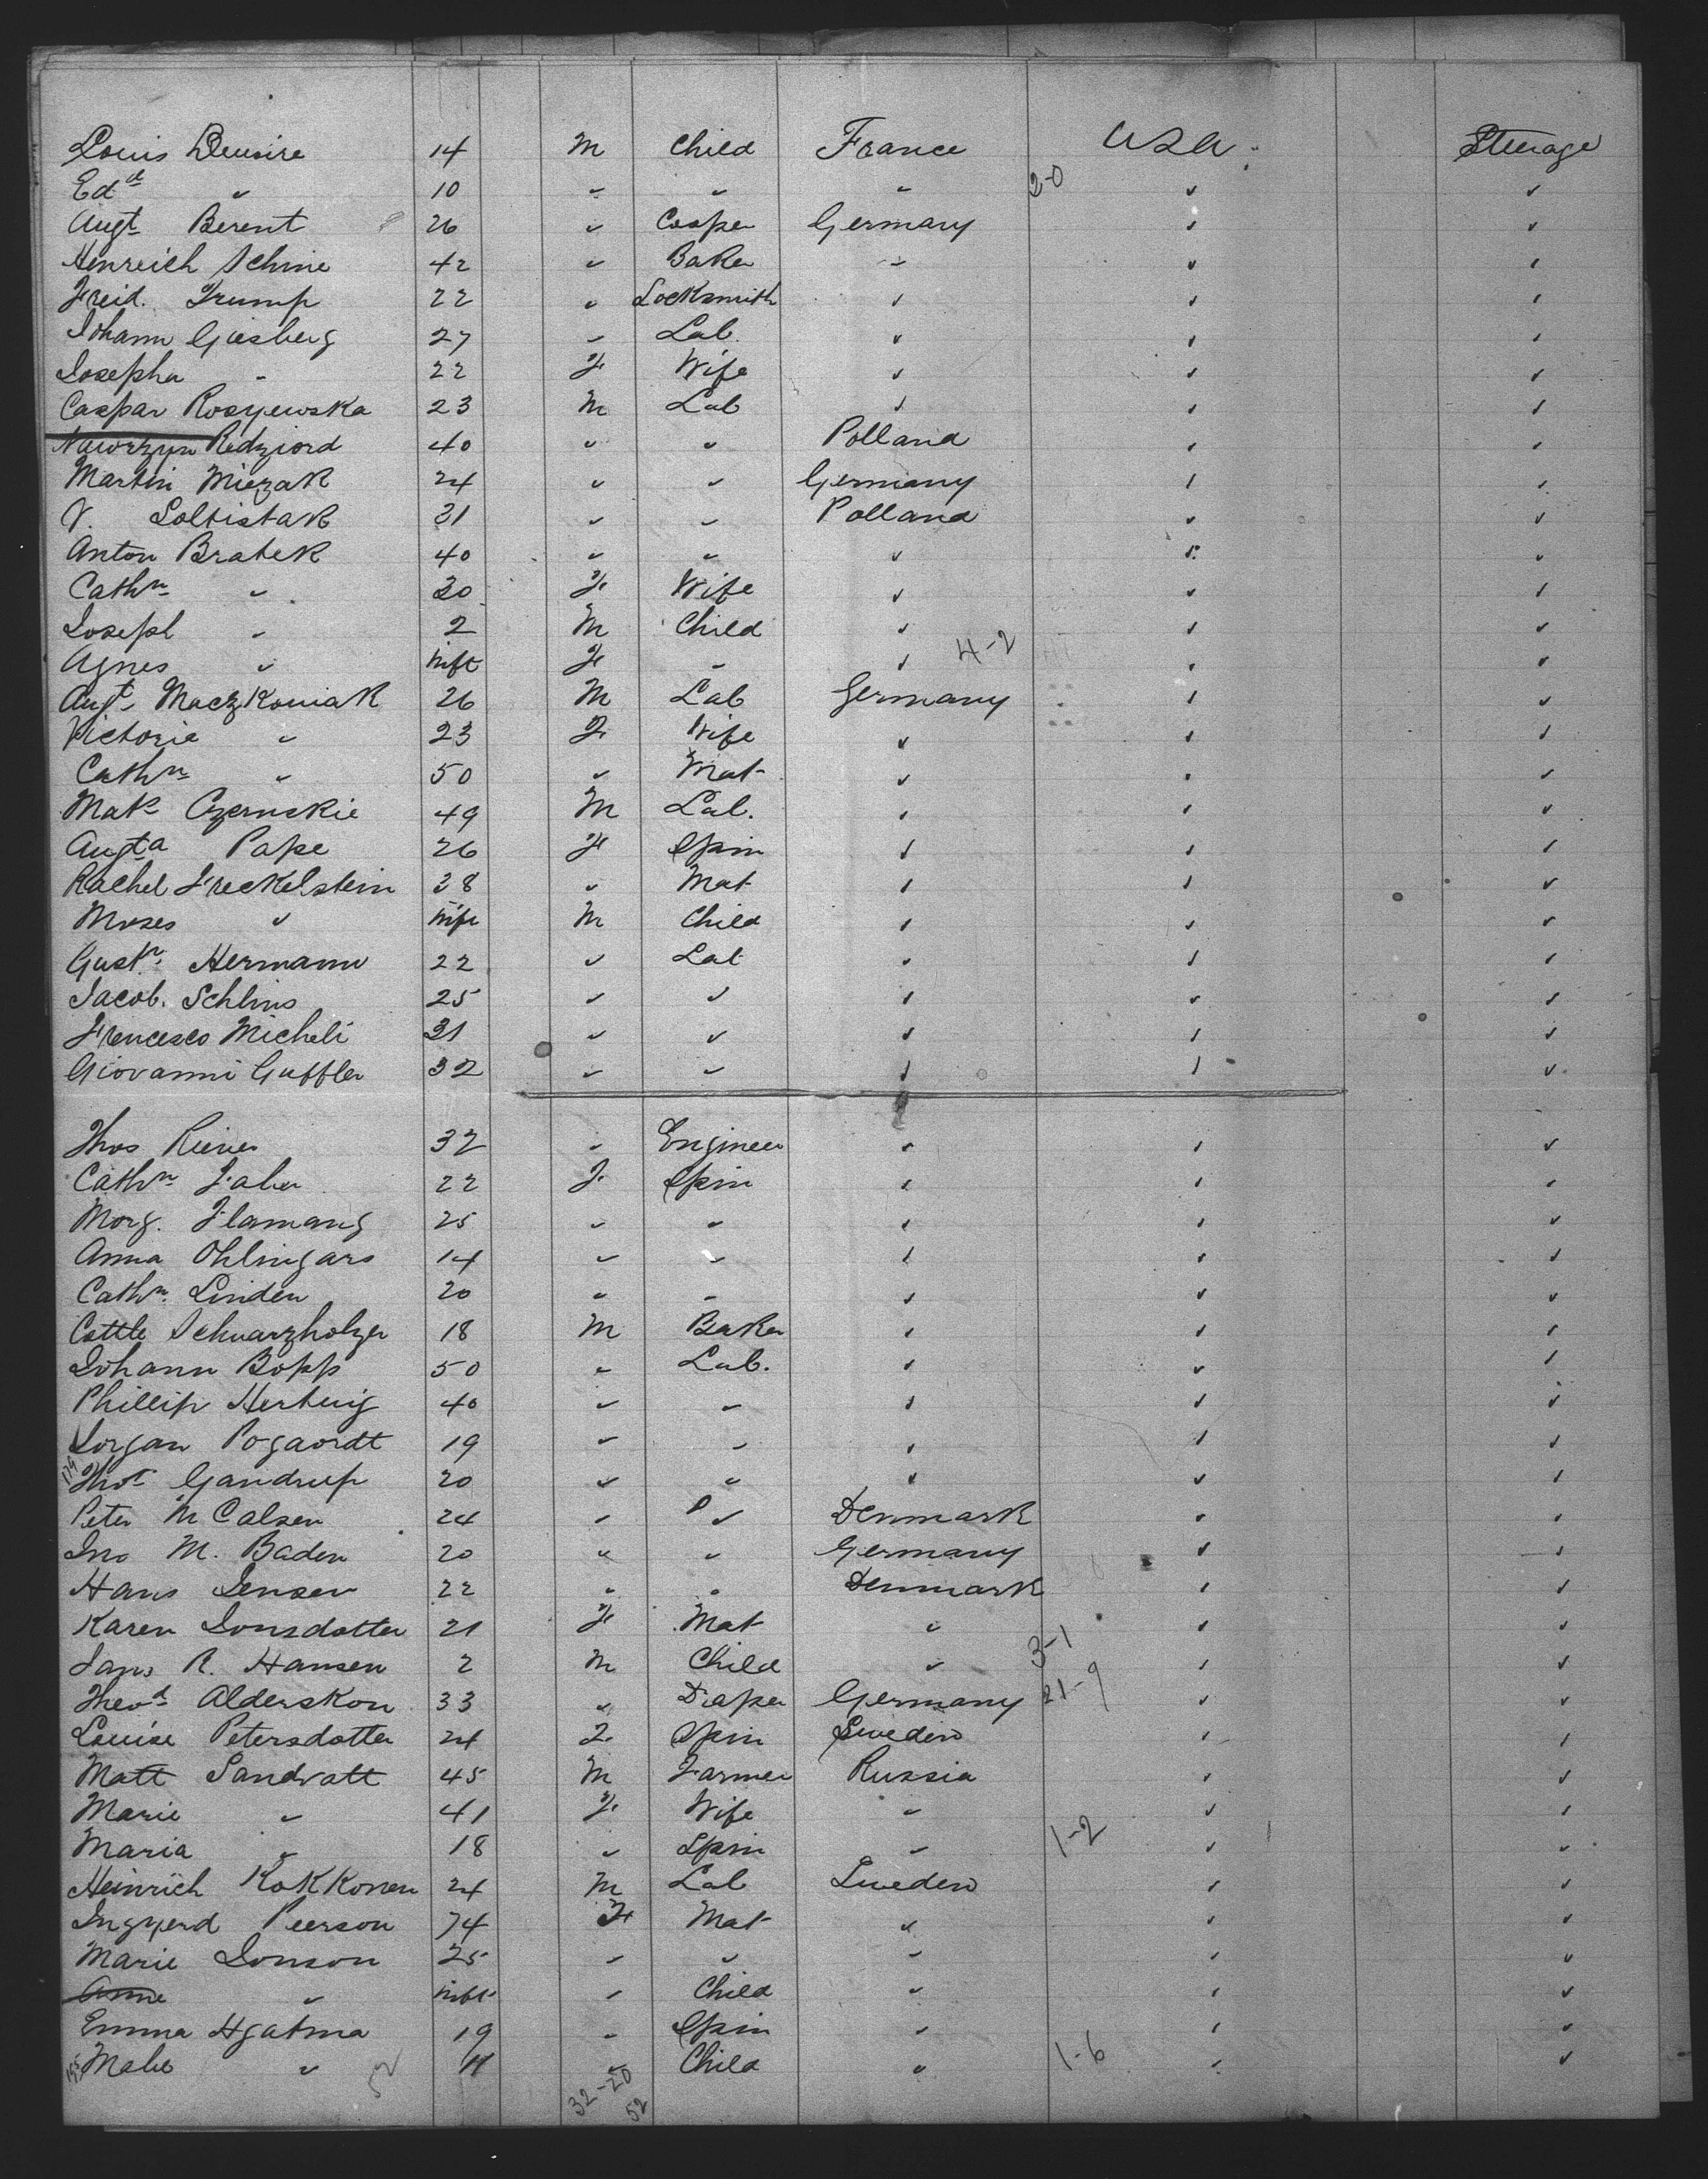 Louis Deusire 14 M Child France USA. Steerage
Edd " 10 " " " " "
Augt Berent 26 " Cooper Germany " "
Henreich Schine 42 " Baker " " "
Freid. Trump 22 " Locksmith " " "
Johann Giesberg 27 " Lab. " " "
Josepha " 22 F Wife " " "
Caspar Rosyewska 23 M Lab " " "
Nawrzyn Redziord 40 " " Polland " "
Martin Miezak 24 " " Germany " "
V. Soltistak 31 " " Polland " "
Anton Bratek 40 " " " " "
Cathn " 30 F Wife " " "
Joseph " 2 M Child " " "
Agnes " inft F " " 4-2 " "
Augt Maczkoniak 26 M Lab Germany " "
Victorie " 23 F Wife " " "
Cathn " 50 " Mat " " "
Mats Czernskie 49 M Lab. " " "
Augta Pape 26 F Spin " " "
Rachel Freckelstein 38 " Mat " " "
Moses " inft M Child " " "
Gustv Hermann 22 " Lab " " "
Jacob. Schlins 25 " " " " "
Francesco Micheli 31 " " " " "
Giovanni Guffler 32 " " " " "
Thos Riener 32 " Engineer " " "
Cathn Faber 22 F Spin " " "
Marg. Flamang 25 " " " " "
Anna Ohlingars 14 " " " " "
Cathn Linden 20 " " " " "
Cottle Schwarzholzer 18 M Baker " " "
Johann Bopp 50 " Lab. " " "
Phillip Hertwig 40 " " " " "
Jorgan Pogaordt 19 " " " " "
Thos Gandrup 20 " " " " "
Peter M Calsen 24 " " Denmark " "
Jno M. Baden 20 " " Germany " "
Hans Jensen 22 " " Denmark " "
Karen Jonsdotter 21 F Mat " " "
Jans R. Hansen 2 M Child " 3-1 " "
Theod Alderskon 33 " Draper Germany 21-9 " "
Louise Petersdotter 24 F Spin Sweden " "
Matt Sandvatt 45 M Farmer Russia " "
Marie " 41 F Wife " " "
Maria " 18 " Spin " 1-2 " "
Heinrich Kokkonen 24 M Lab Sweden " "
Ingyerd Peerson 74 F Mat " " "
Marie Jonson 25 " " " " "
Anne " inft " Child " " "
Emma Hgatma 19 " Spin " " "
Malie " 11 " Child " 1-6 " "
52 32-20
52